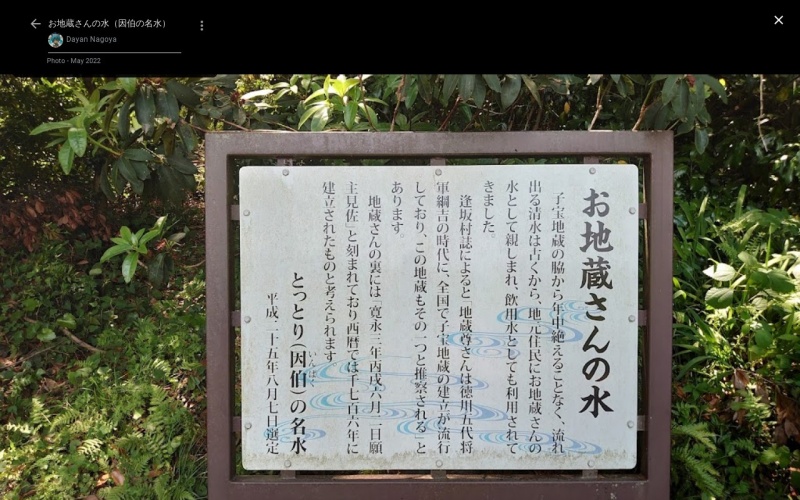 お地蔵さんの水（因伯の名水）
Dayan Nagoya
Photo - May 2022
お地蔵さんの水
子宝地蔵の脇から年中絶えることなく、流れ
出る清水は古くから、地元住民にお地蔵さんの
水として親しまれ、飲用水としても利用されて
きました。
逢坂村誌によると「地蔵尊さんは徳川五代将
軍綱吉の時代に、全国で子宝地蔵の建立が流行
しており、この地蔵もその一つと推察される」と
あります。
地蔵さんの裏には「寛永三年丙戌六月二日願
主見佐」と刻まれており西暦では千七百六年に
建立されたものと考えられます。
とっとり（因伯）の名水
いんぱく
平成二十五年八月七日選定